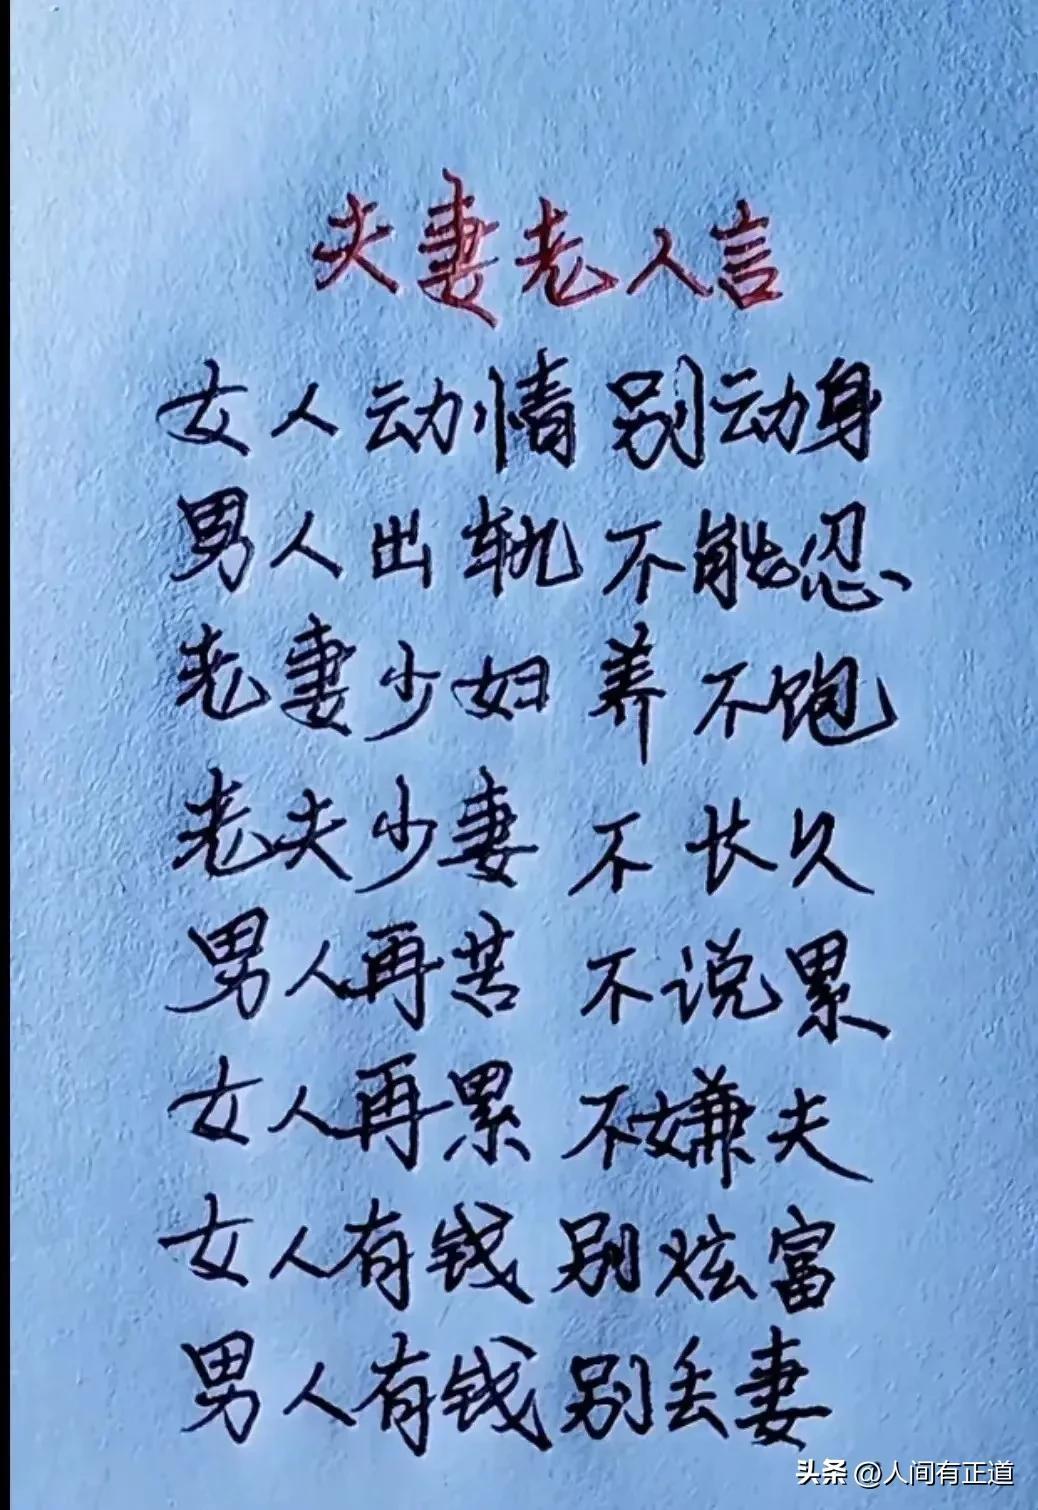 夫妻老人言
女人动情别动身
男人出轨不能忍
老妻少妇养不饱
老夫少妻不长久
男人再苦不说累
女人再累不嫌夫
女人有钱别炫富
男人有钱别丢妻
头条 @人间有正道